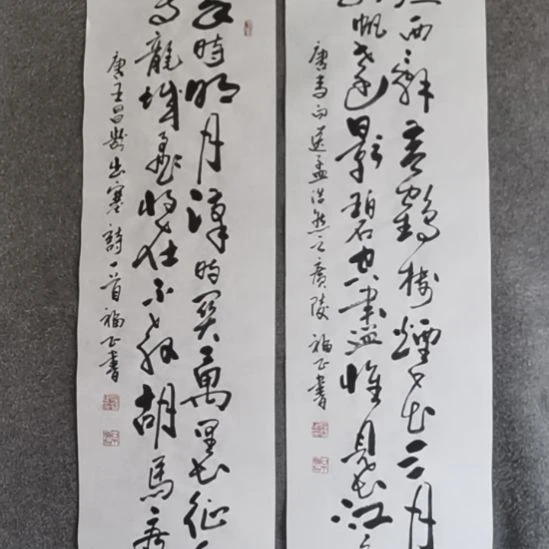 西辭黃鶴樓煙花三月
帆遠影碧空盡惟見長江
唐李白送孟浩然之廣陵 福正書
時明月漢時關萬里長征
龍城飛將在不教胡馬
唐王昌齡出塞詩一首 福正書